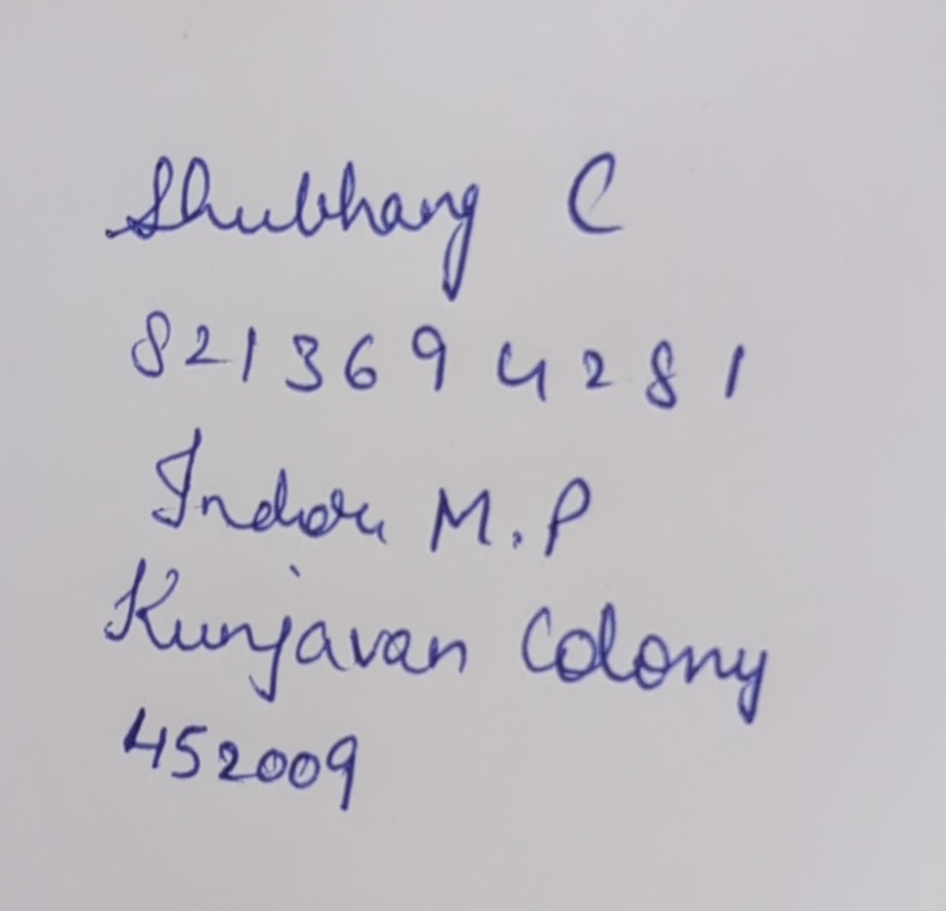 Shubhang C
8213694281
Indore M.P
Kunjavan Colony
452009